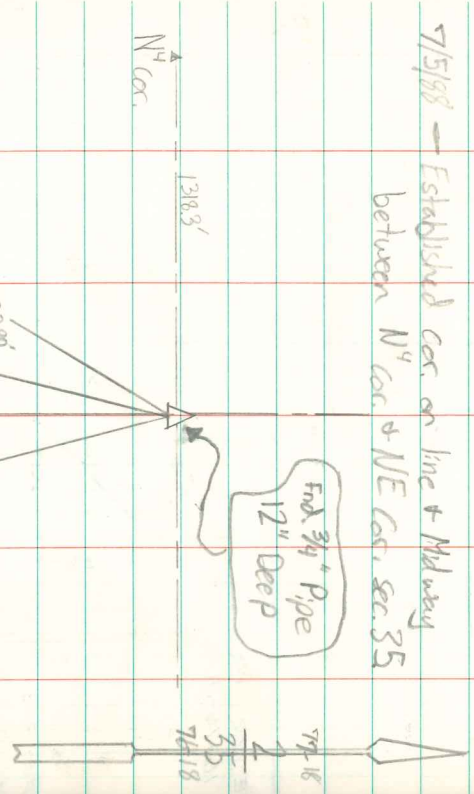 7/5/88 — Established cor. on line & Midway
between N¼ cor. & NE Cor. sec. 35
Fnd. 3/4" Pipe
12" Deep
1318.3'
N¼ cor.
77-18
2
35
76-18